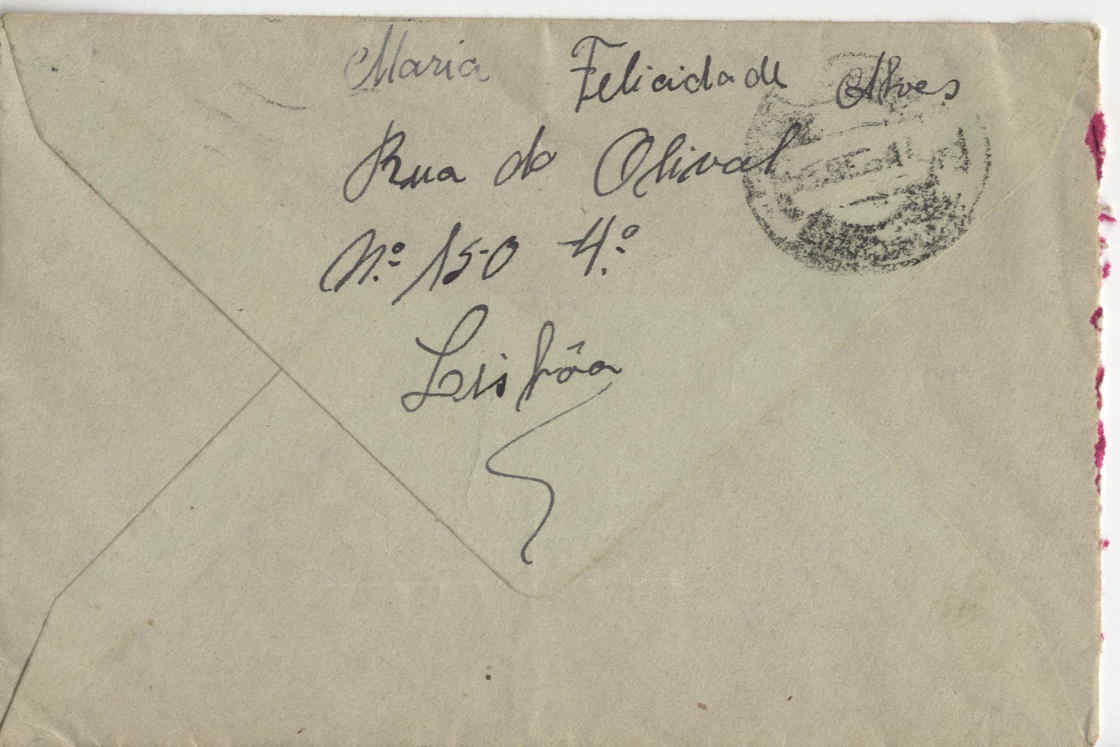 Maria Felicidade Alves
Rua do Olival
N.º 150 4.º
Lisbôa